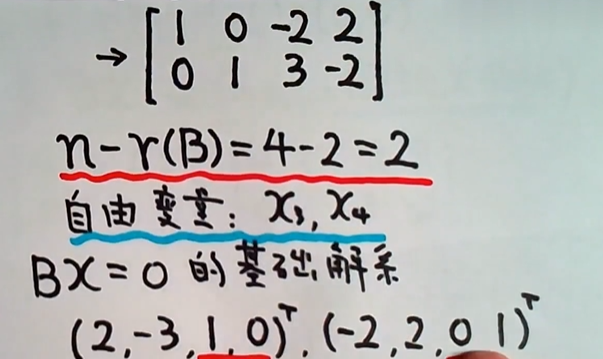 → [1 0 -2 2
0 1 3 -2]
n-r(B)=4-2=2
自由变量: x₃,x₄
BX=0 的基础解系
(2,-3,1,0)ᵀ,(-2,2,0 1)ᵀ